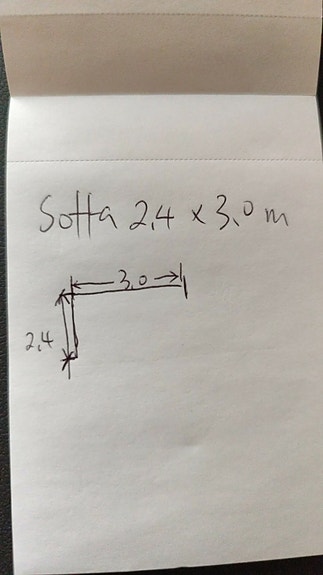 Sotta 2,4 x 3,0 m
3,0
2,4